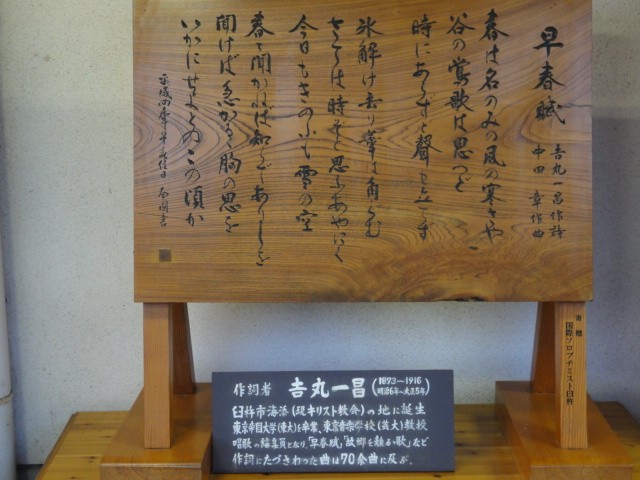 早春賦
吉丸一昌作詩
中田　章作曲
春は名のみの風の寒さや
谷の鶯歌は思へど
時にあらずと聲も立てず
氷解け去り葦は角ぐむ
さては時ぞと思ふあやにく
今日もきのふも雪の空
春と聞かねば知らでありしを
聞けば急かるる胸の思を
いかにせよとのこの頃か
寄贈
国際ソロプチミスト臼杵
作詞者　吉丸一昌（1873〜1916 明治6年〜大正5年）
臼杵市海添（現キリスト教会）の地に誕生
東京帝国大学（東大）を卒業、東京音楽学校（芸大）教授
唱歌の編集員となり、「早春賦」「故郷を離るる歌」など
作詞にたづさわった曲は70余曲に及ぶ。